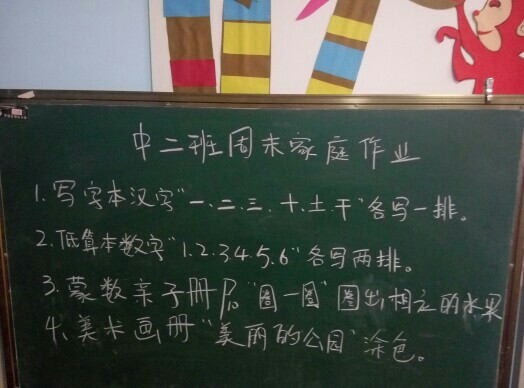 中二班周末家庭作业
1.写字本汉字"一、二、三、十、土、干"各写一排。
2.低算本数字"1.2.3.4.5.6"各写两排。
3.蒙数亲子册P10"圈一圈"圈出相应的水果
4.美术画册"美丽的公园"涂色。